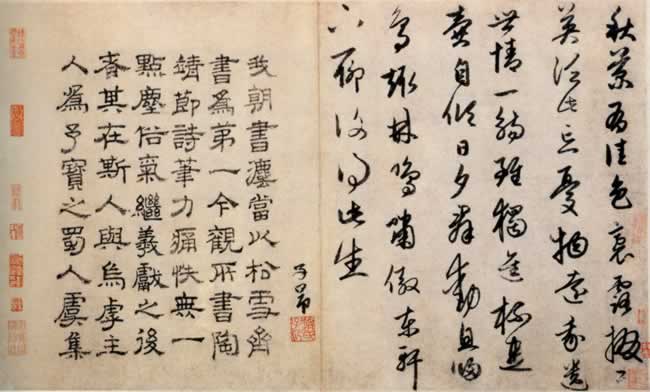 秋菊有佳色裛露掇其
英汎此忘憂物遠我遺
世情一觴雖獨進杯盡
壺自傾日夕群動息歸
鳥趨林鳴嘯傲東軒
下聊復得此生
子昂
我朝書廛當以松雪齊
書爲第一今觀所書陶
靖節詩筆力痛快無一
點塵俗氣繼羲獻之後
者其在斯人與烏虖主
人爲予寶之蜀人虞集